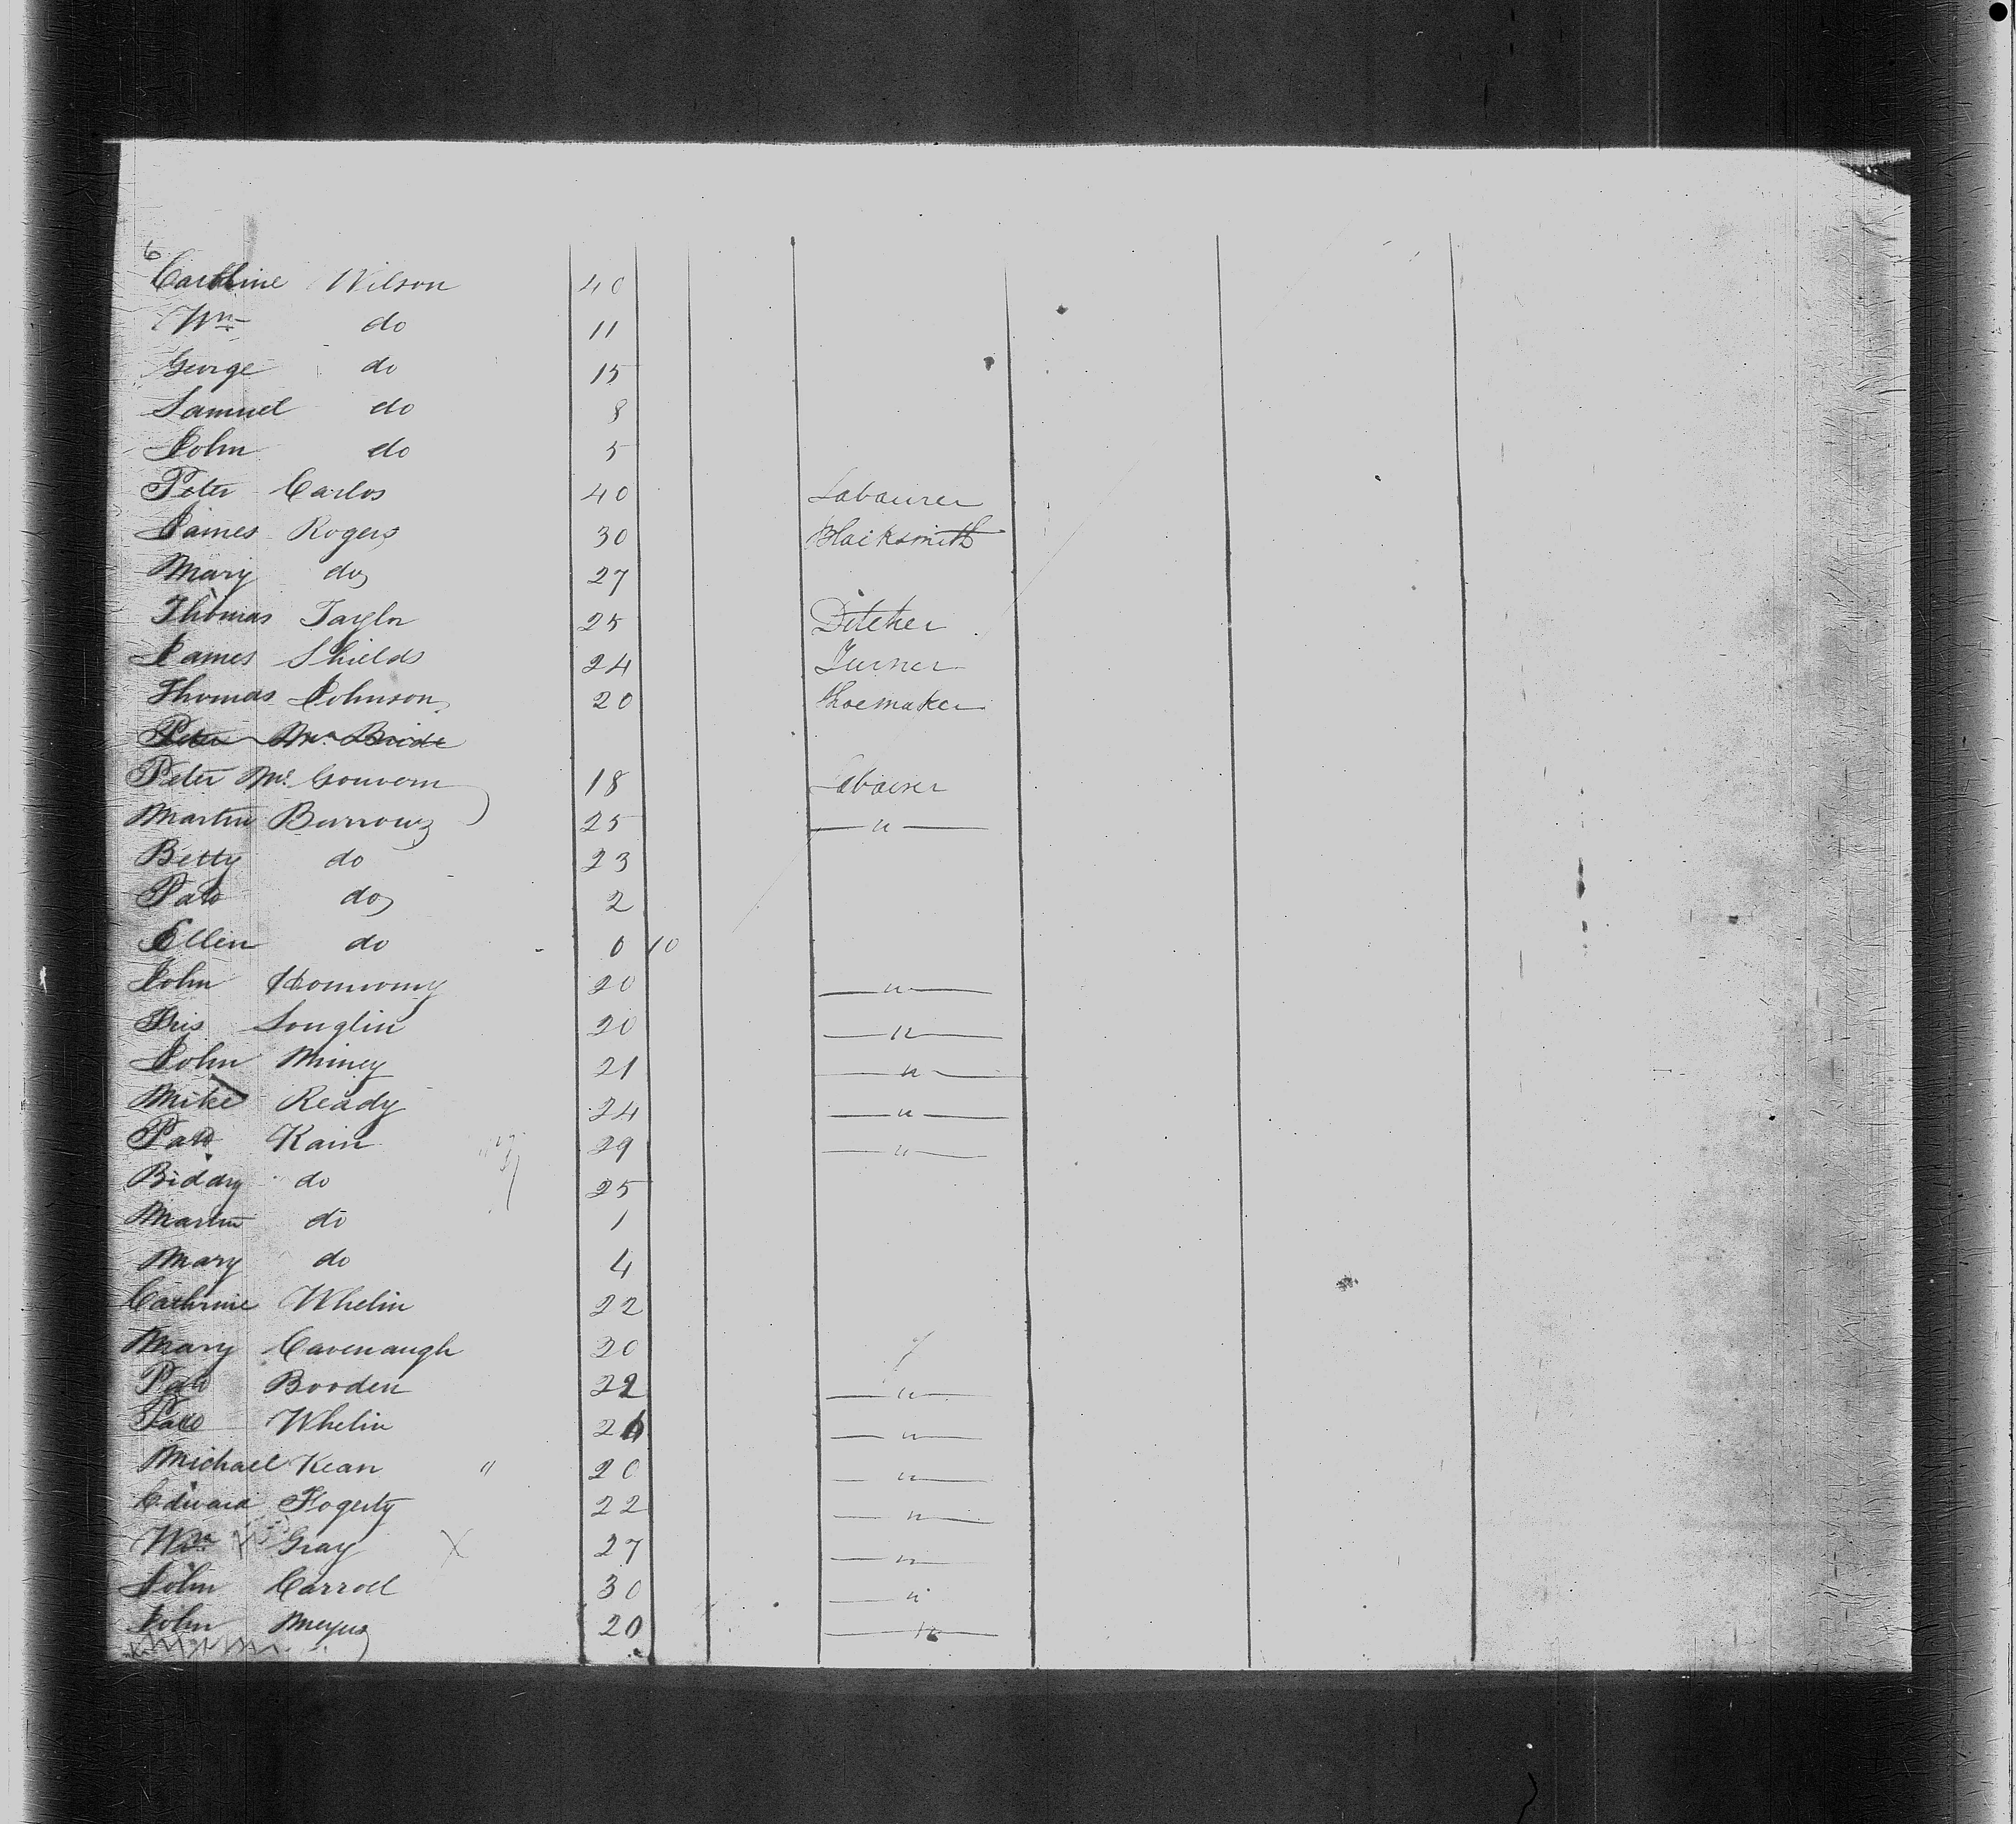 6
Cathrine Wilson 40
Wm do 11
George do 15
Samuel do 8
John do 5
Peter Carlos 40 Labourer
James Rogers 30 Blacksmith
Mary do 27
Thomas Taylor 25 Ditcher
James Shields 24 Turner
Thomas Johnson 20 Shoemaker
Peter Mc Bride
Peter Mc Gouvern 18 Labourer
Martin Burrows 25 — " —
Betty do 23
Patk do 2
Ellen do 0 10
John 20 — " —
20 — " —
John Miney 21 — " —
Mike Ready 24 — " —
Patk Kain 29 — " —
Biddy do 25
Martin do 1
Mary do 4
Cathrine Whelin 22
Mary Cavenaugh 20
Patk Booden 22 — " —
Patk Whelin — " —
Michael Kean " 20 — " —
Edward Fogerty 22 — " —
Wm Gray X 27 — " —
John Carroll 30 — " —
John 20 — " —